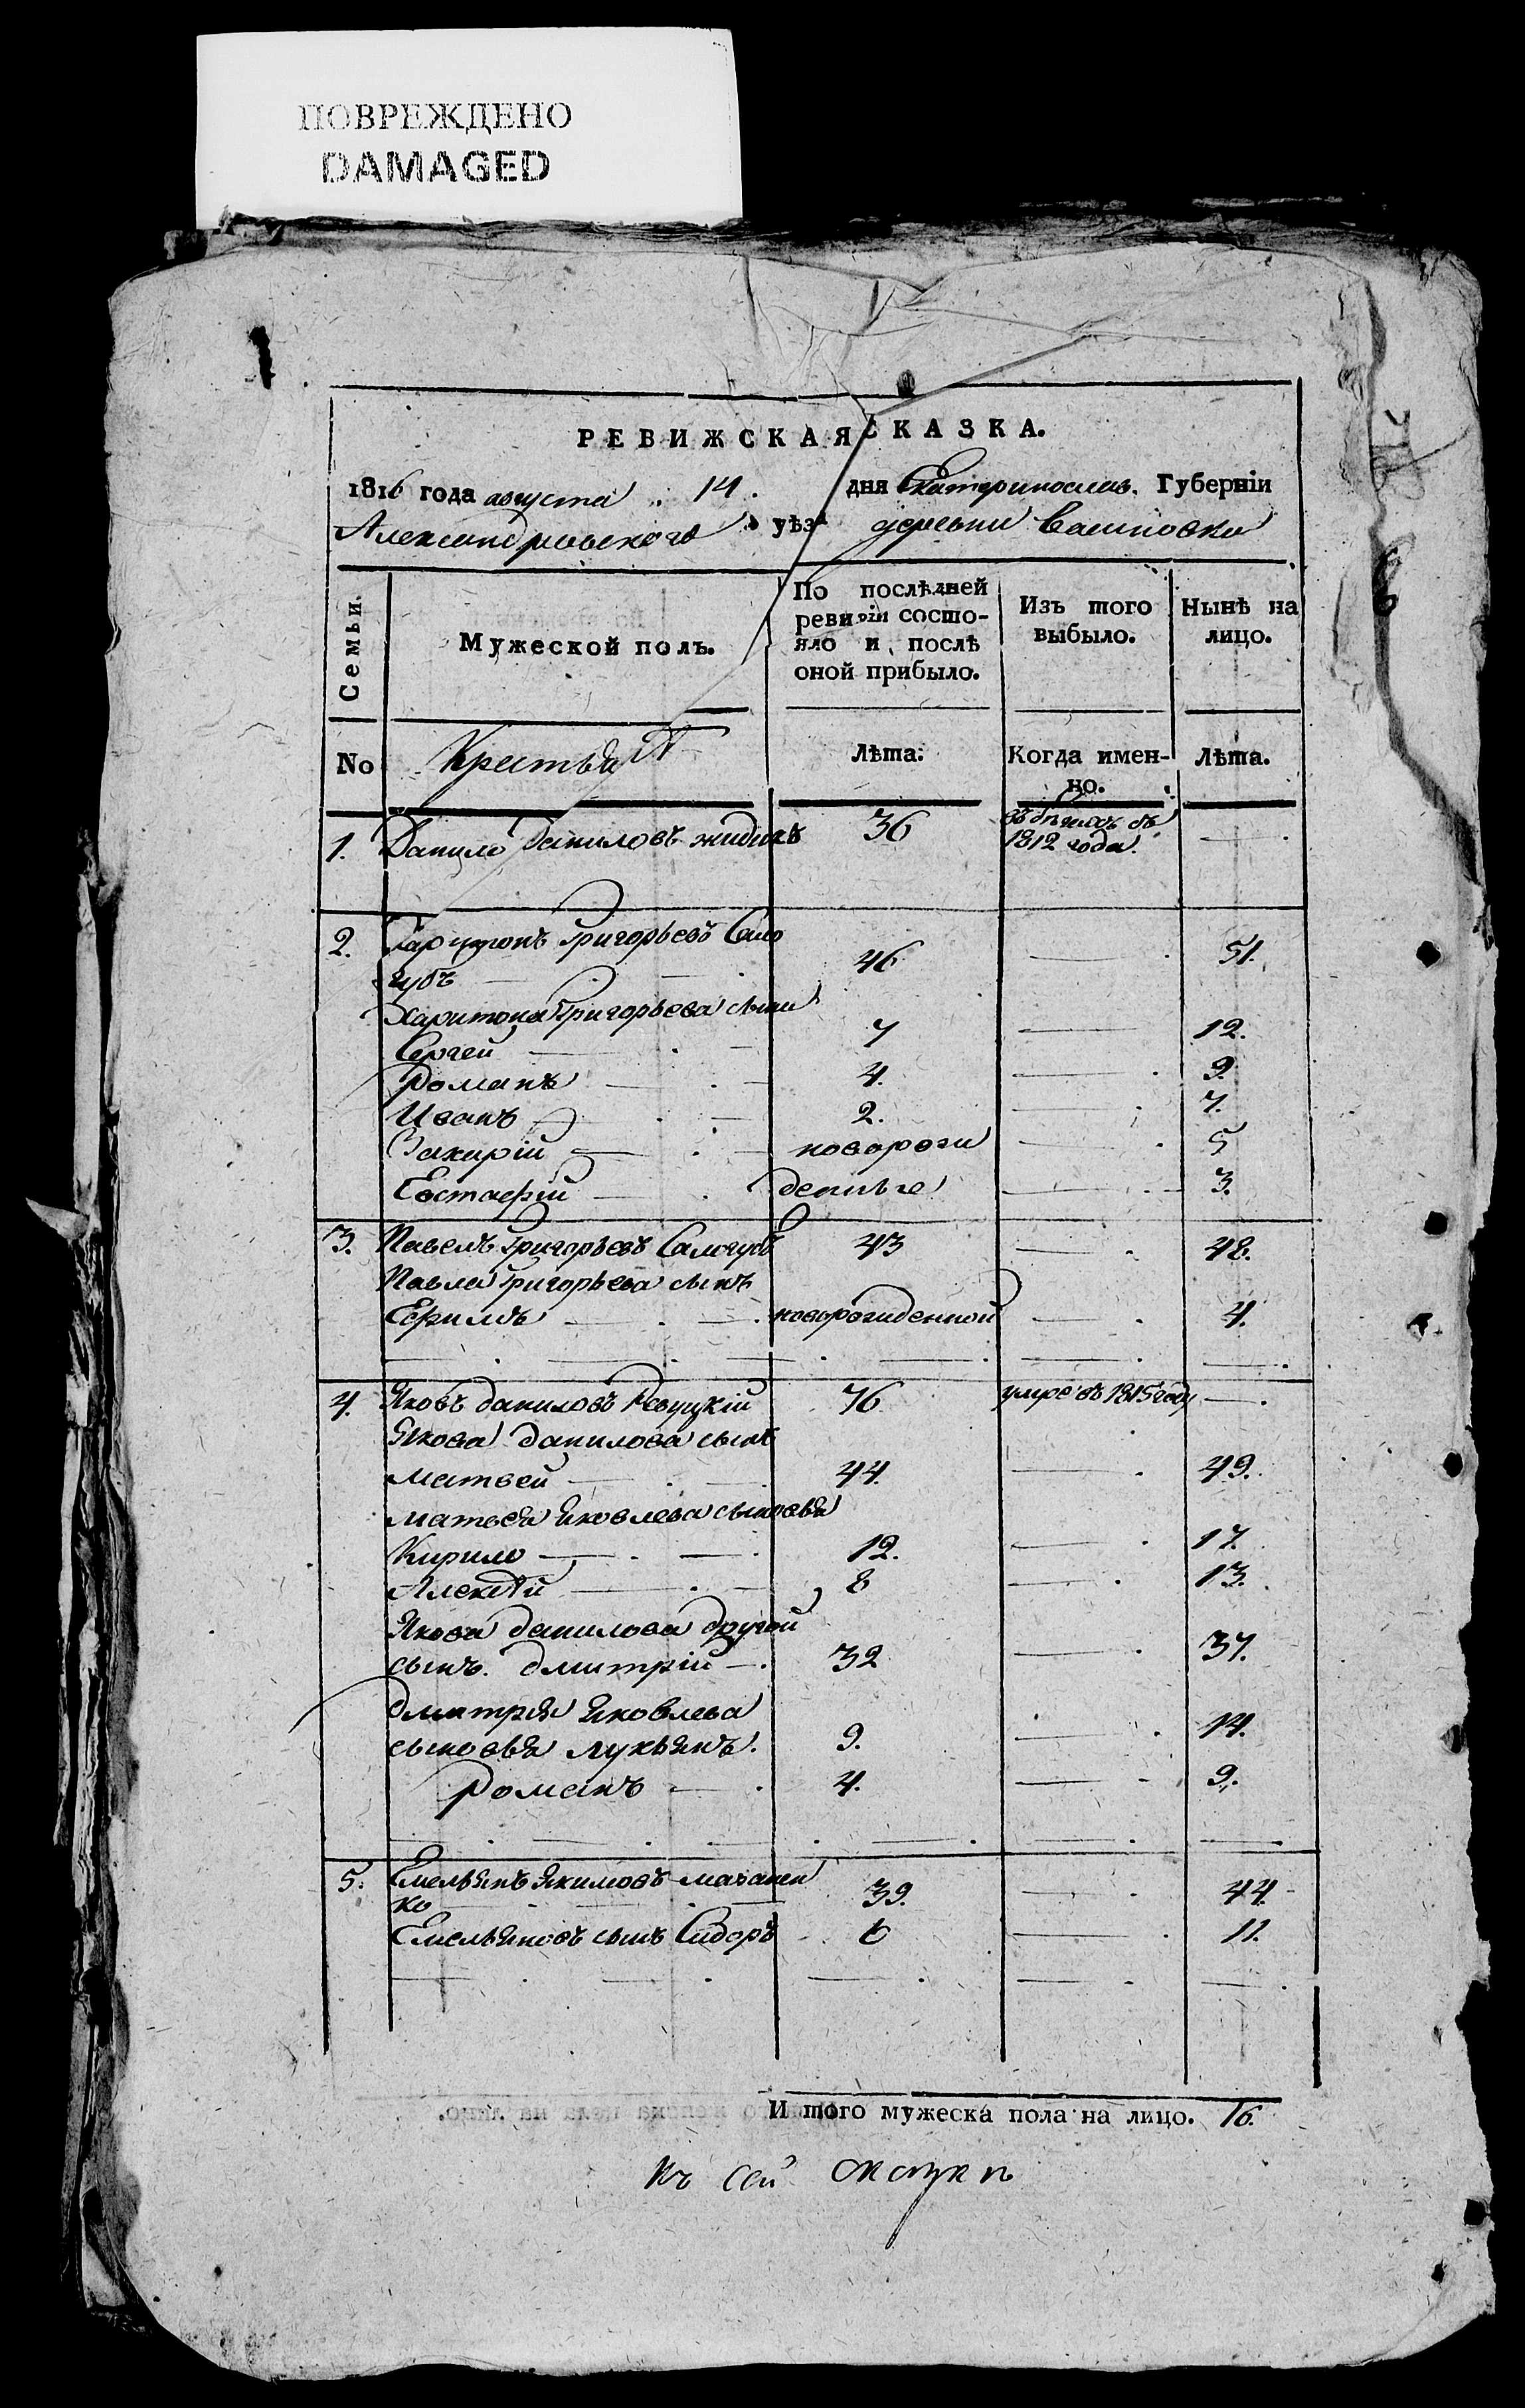 ПОВРЕЖДЕНО
DAMAGED
РЕВИЖСКАЯ СКАЗКА.
1816 года августа 14. дня Екатеринослав. Губерніи
Александровского уѣзд деревни
Семьи.
Мужеской полъ.
По послѣдней ревизіи состо-
яло и послѣ
оной прибыло.
Изъ того
выбыло.
Нынѣ на
лицо.
No
Крестьян
Лѣта.
Когда имен-
но.
Лѣта.
1. Данило Даниловъ жидикъ 36 въ бѣгахъ съ
1812 года. —
2. Харитонъ Григорьевъ Сало
губъ — 46 — 51.
Харитона Григорьева сыны
Сергей — 7 — 12.
Романъ — 4. — 9.
Иванъ — 2. — 7.
Захарій — новорож — 5
Евстафій — денные — 3.
3. Павелъ Григорьевъ Салогубъ 43 — 48.
Павла Григорьева сынъ
Ефимъ — новорожденной — 4.
4. Яковъ Даниловъ Ревуцкій 76 умре въ 1815 году —
Якова Данилова сынъ
Матвей — 44. — 49.
Матвея Яковлева сыновья
Кирило — 12. — 17.
Алексѣй — 8 — 13.
Якова Данилова другой
сынъ. Дмитрій — 32 — 37.
Дмитрія Яковлева
сыновья Лукьянъ. 9. — 14.
Романъ — 4. — 9.
5. Емельянъ Якимовъ
ко — 39. — 44.
Емельяновъ сынъ Сидоръ 6 — 11.
Итого мужеска пола на лицо. 16.
Къ сей сказкѣ